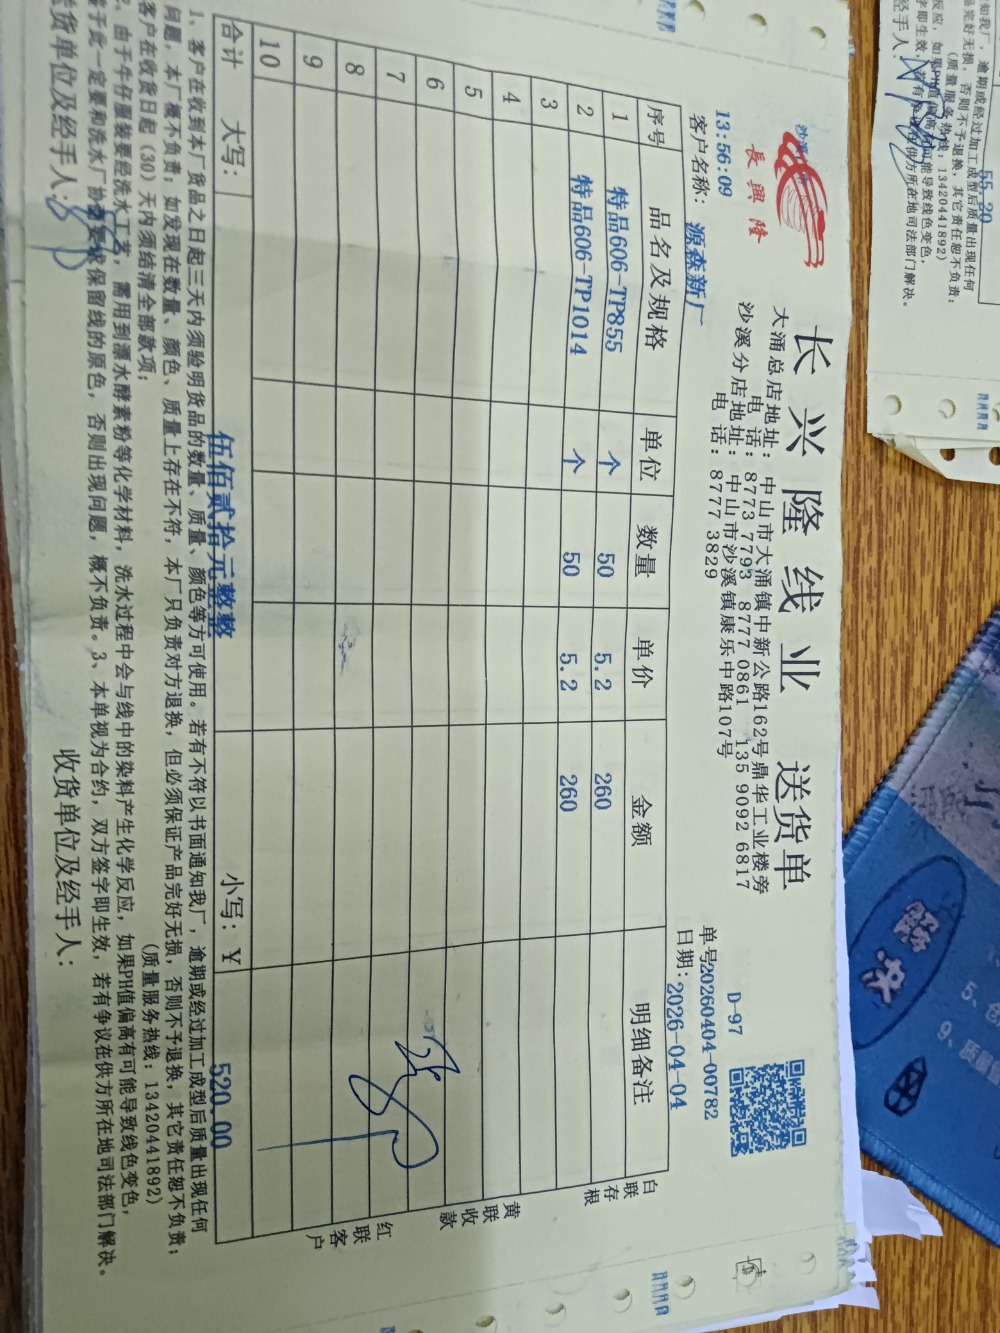 長興隆
长兴隆线业 送货单
大涌总店地址：中山市大涌镇中新公路162号鼎华工业楼旁
电 话：8773 7793 8777 0861 135 9092 6817
沙溪分店地址：中山市沙溪镇康乐中路107号
电 话：8777 3829
D-97
13:56:09
单号20260404-00782
客户名称：源森新厂
日期：2026-04-04
序号 品名及规格 单位 数量 单价 金额 明细备注
1 特品606-TP855 个 50 5.2 260
2 特品606-TP1014 个 50 5.2 260
3
4
5
6
7
8
9
10
合计 大写： 伍佰贰拾元整整 小写：￥ 520.00
白联存根
黄联收款
红联客户
1、客户在收到本厂货品之日起三天内须验明货品的数量、质量、颜色等方可使用。若有不符以书面通知我厂，逾期或经过加工成型后质量出现任何
问题，本厂概不负责；如发现在数量、颜色、质量上存在不符，本厂只负责对方退换，但必须保证产品完好无损，否则不予退换，其它责任恕不负责；
客户在收货日起（30）天内须结清全部款项； （质量服务热线：13420441892）
2、由于牛仔服装要经洗水工艺，需用到漂水酵素粉等化学材料，洗水过程中会与线中的染料产生化学反应，如果PH值偏高有可能导致线色变色，
鉴于此一定要和洗水厂协商要求保留线的原色，否则出现问题，概不负责。3、本单视为合约，双方签字即生效，若有争议在供方所在地司法部门解决。
送货单位及经手人：
收货单位及经手人：
55.20
知我厂，逾期或经过加工成型后质量出现任何
品完好无损，否则不予退换，其它责任恕不负责；
（质量服务热线：13420441892）
供方所在地司法部门解决。
经手人：
解决
5、色
9、质量